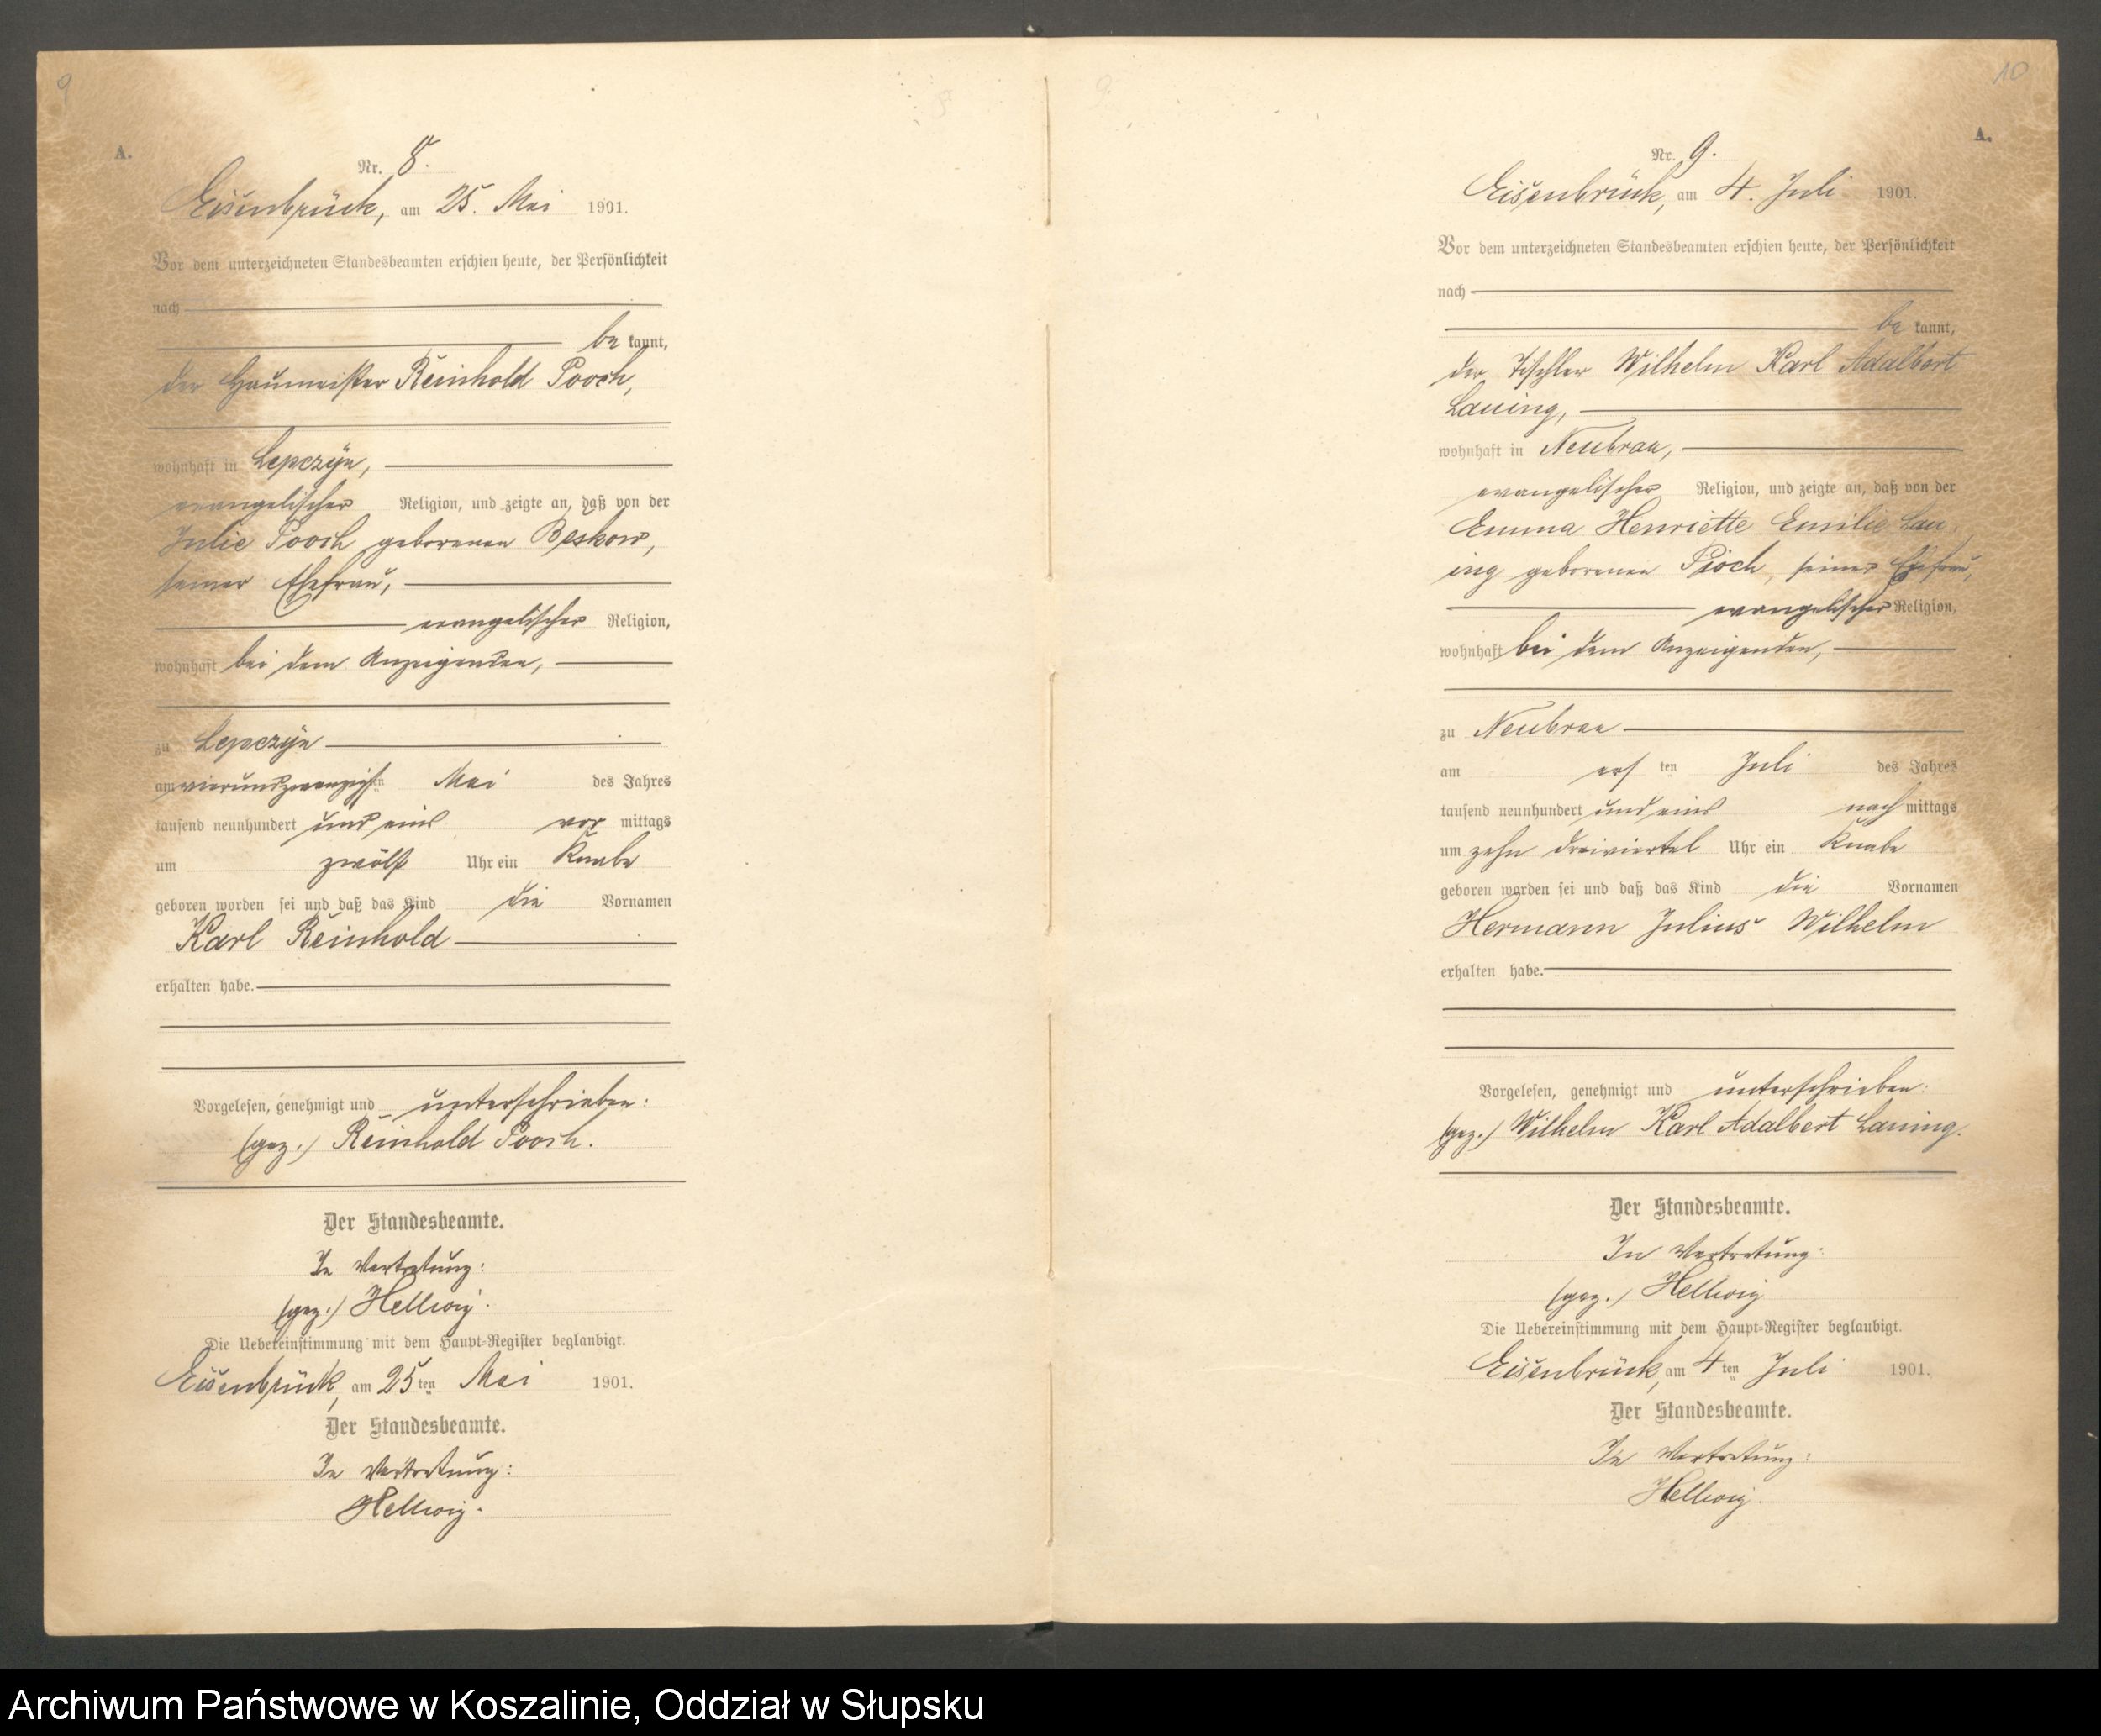 9
A.
Nr. 8.
Eisenbrück, am 25. Mai 1901.
Vor dem unterzeichneten Standesbeamten erschien heute, der Persönlichkeit
nach
be kannt,
der Haumeister Reinhold Pooch,
wohnhaft in Lepczyn,
evangelischer Religion, und zeigte an, daß von der
Julie Pooch geborenen Beskow,
seiner Ehefrau,
evangelischer Religion,
wohnhaft bei dem Anzeigenden,
zu Lepczyn
am vierundzwanzigsten Mai des Jahres
tausend neunhundert und eins vor mittags
um zwölf Uhr ein Knabe
geboren worden sei und daß das Kind die Vornamen
Karl Reinhold
erhalten habe.
Vorgelesen, genehmigt und unterschrieben:
(gez.) Reinhold Pooch.
Der Standesbeamte.
In Vertretung:
(gez.) Hellwig.
Die Uebereinstimmung mit dem Haupt-Register beglaubigt.
Eisenbrück, am 25 ten Mai 1901.
Der Standesbeamte.
In Vertretung:
Hellwig.
10
A.
Nr. 9.
Eisenbrück, am 4. Juli 1901.
Vor dem unterzeichneten Standesbeamten erschien heute, der Persönlichkeit
nach
be kannt,
der Tischler Wilhelm Karl Adalbert
Lauing,
wohnhaft in Neubrau,
evangelischer Religion, und zeigte an, daß von der
Emma Henriette Emilie Lau-
ing geborenen Pioch, seiner Ehefrau,
evangelischer Religion,
wohnhaft bei dem Anzeigenden,
zu Neubrau
am ers ten Juli des Jahres
tausend neunhundert und eins nach mittags
um zehn dreiviertel Uhr ein Knabe
geboren worden sei und daß das Kind die Vornamen
Hermann Julius Wilhelm
erhalten habe.
Vorgelesen, genehmigt und unterschrieben:
(gez.) Wilhelm Karl Adalbert Lauing.
Der Standesbeamte.
In Vertretung:
(gez.) Hellwig
Die Uebereinstimmung mit dem Haupt-Register beglaubigt.
Eisenbrück, am 4 ten Juli 1901.
Der Standesbeamte.
In Vertretung:
Hellwig.
Archiwum Państwowe w Koszalinie, Oddział w Słupsku